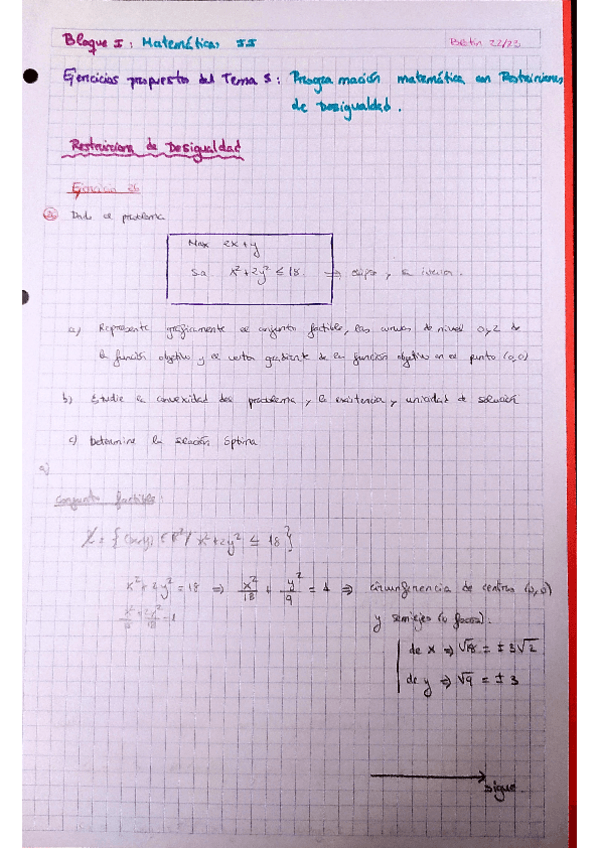 Bloque I: Matemáticas II
Belén 22/23
Ejercicios propuestos del Tema 5: Programación matemática con Restricciones
de Desigualdad.
Restricciones de Desigualdad
Ejercicio 26
26 Dado el problema
Max 2x+y
Sa x²+2y² ≤ 18 ⇒ elipse y su interior.
a) Represente gráficamente el conjunto factible, las curvas de nivel 0 y 2 de
la función objetivo y el vector gradiente de la función objetivo en el punto (0,0)
b) Estudie la convexidad del problema y la existencia y unicidad de solución
c) Determine la solución óptima
a)
Conjunto factible:
X = { (x,y) ∈ R² / x²+2y² ≤ 18 }
x²+2y² = 18 ⇒ x²/18 + y²/9 = 1 ⇒ circunferencia de centro (0,0)
y semiejes (o focos):
de x ⇒ √18 = ± 3√2
de y ⇒ √9 = ± 3
sigue